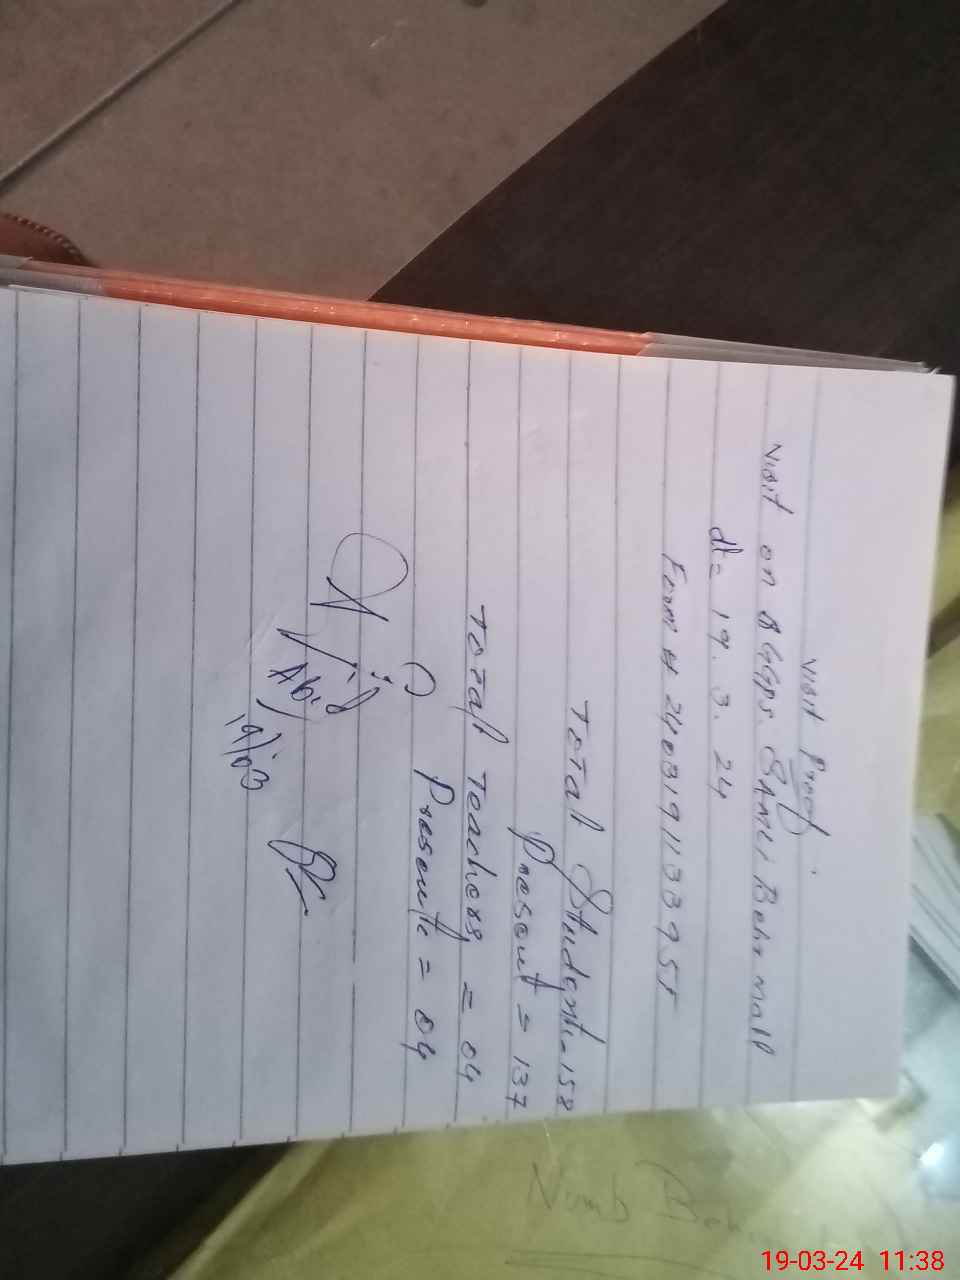 Visit Proof
Visit on GGPS. SAMLI Behr mall
dt= 19. 3. 24
Form # 24031911339 51
Total Students=158
Present = 137
Total Teachers = 04
Present = 04
Abid
19/03
19-03-24 11:38